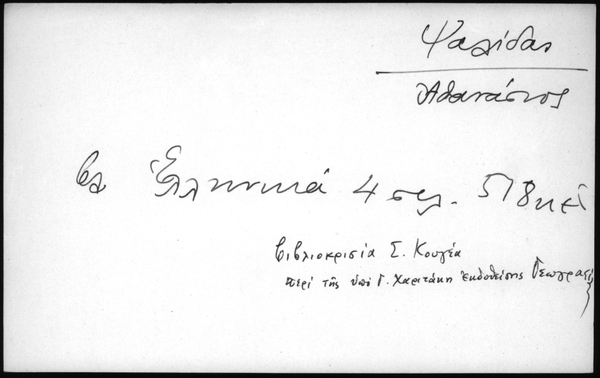 Ψαλίδας
Ἀθανάσιος
βλ Ἑλληνικά 4 σελ. 518 κ ἑ
βιβλιοκρισία Σ. Κουγέα
περί τῆς ὑπό Γ. Χαριτάκη ἐκδοθείσης Γεωγραφι